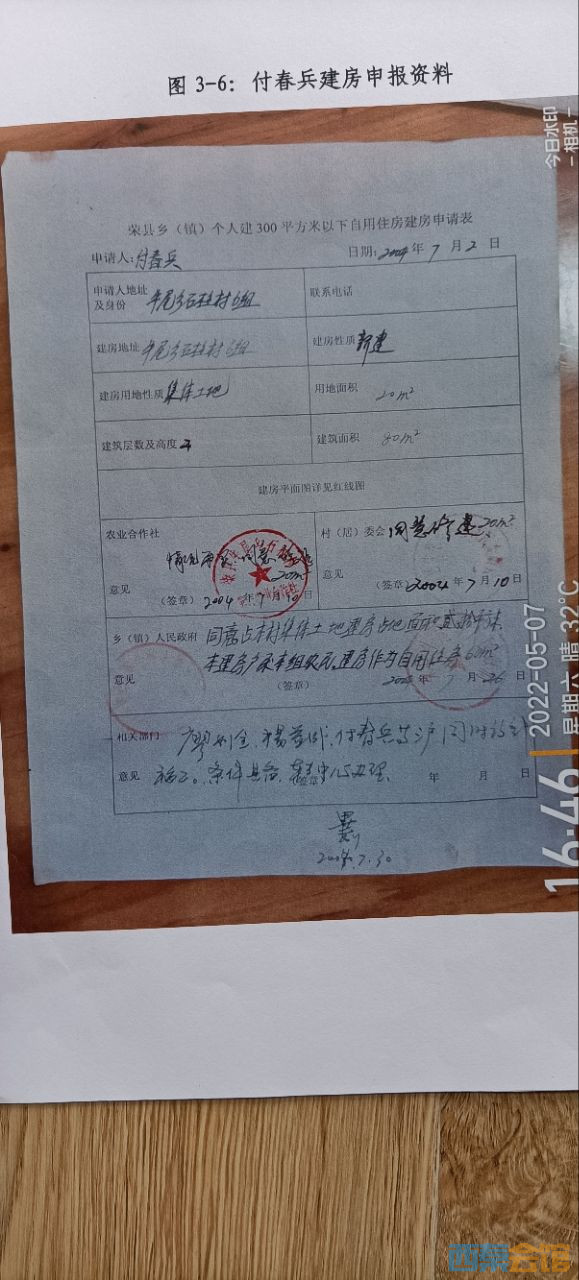 图 3-6：付春兵建房申报资料
今日水印
-相机-
荣县乡（镇）个人建300平方米以下自用住房建房申请表
申请人:付春兵 日期:2004年7月2日
申请人地址及身份 牟尾乡石柱村6组 联系电话
建房地址 牟尾乡石柱村6组 建房性质 新建
建房用地性质 集体土地 用地面积 20m²
建筑层数及高度 建筑面积 80m²
建房平面图详见红线图
农业合作社 村（居）委会 同意修建20m²
情况 同意 20m²
意见 （签章）2004年7月10日 意见 （签章）2004年7月10日
乡（镇）人民政府 同意占本村集体土地建房占地面积贰拾平方米
本建房户系本组农民，建房作为自用住房 60m²
意见 （签章） 7月26日
相关部门 付春兵
意见 条件具备 办理 年 月 日
2004.7.30
2022-05-07
星期六 晴 32℃
16:46
西秦会馆